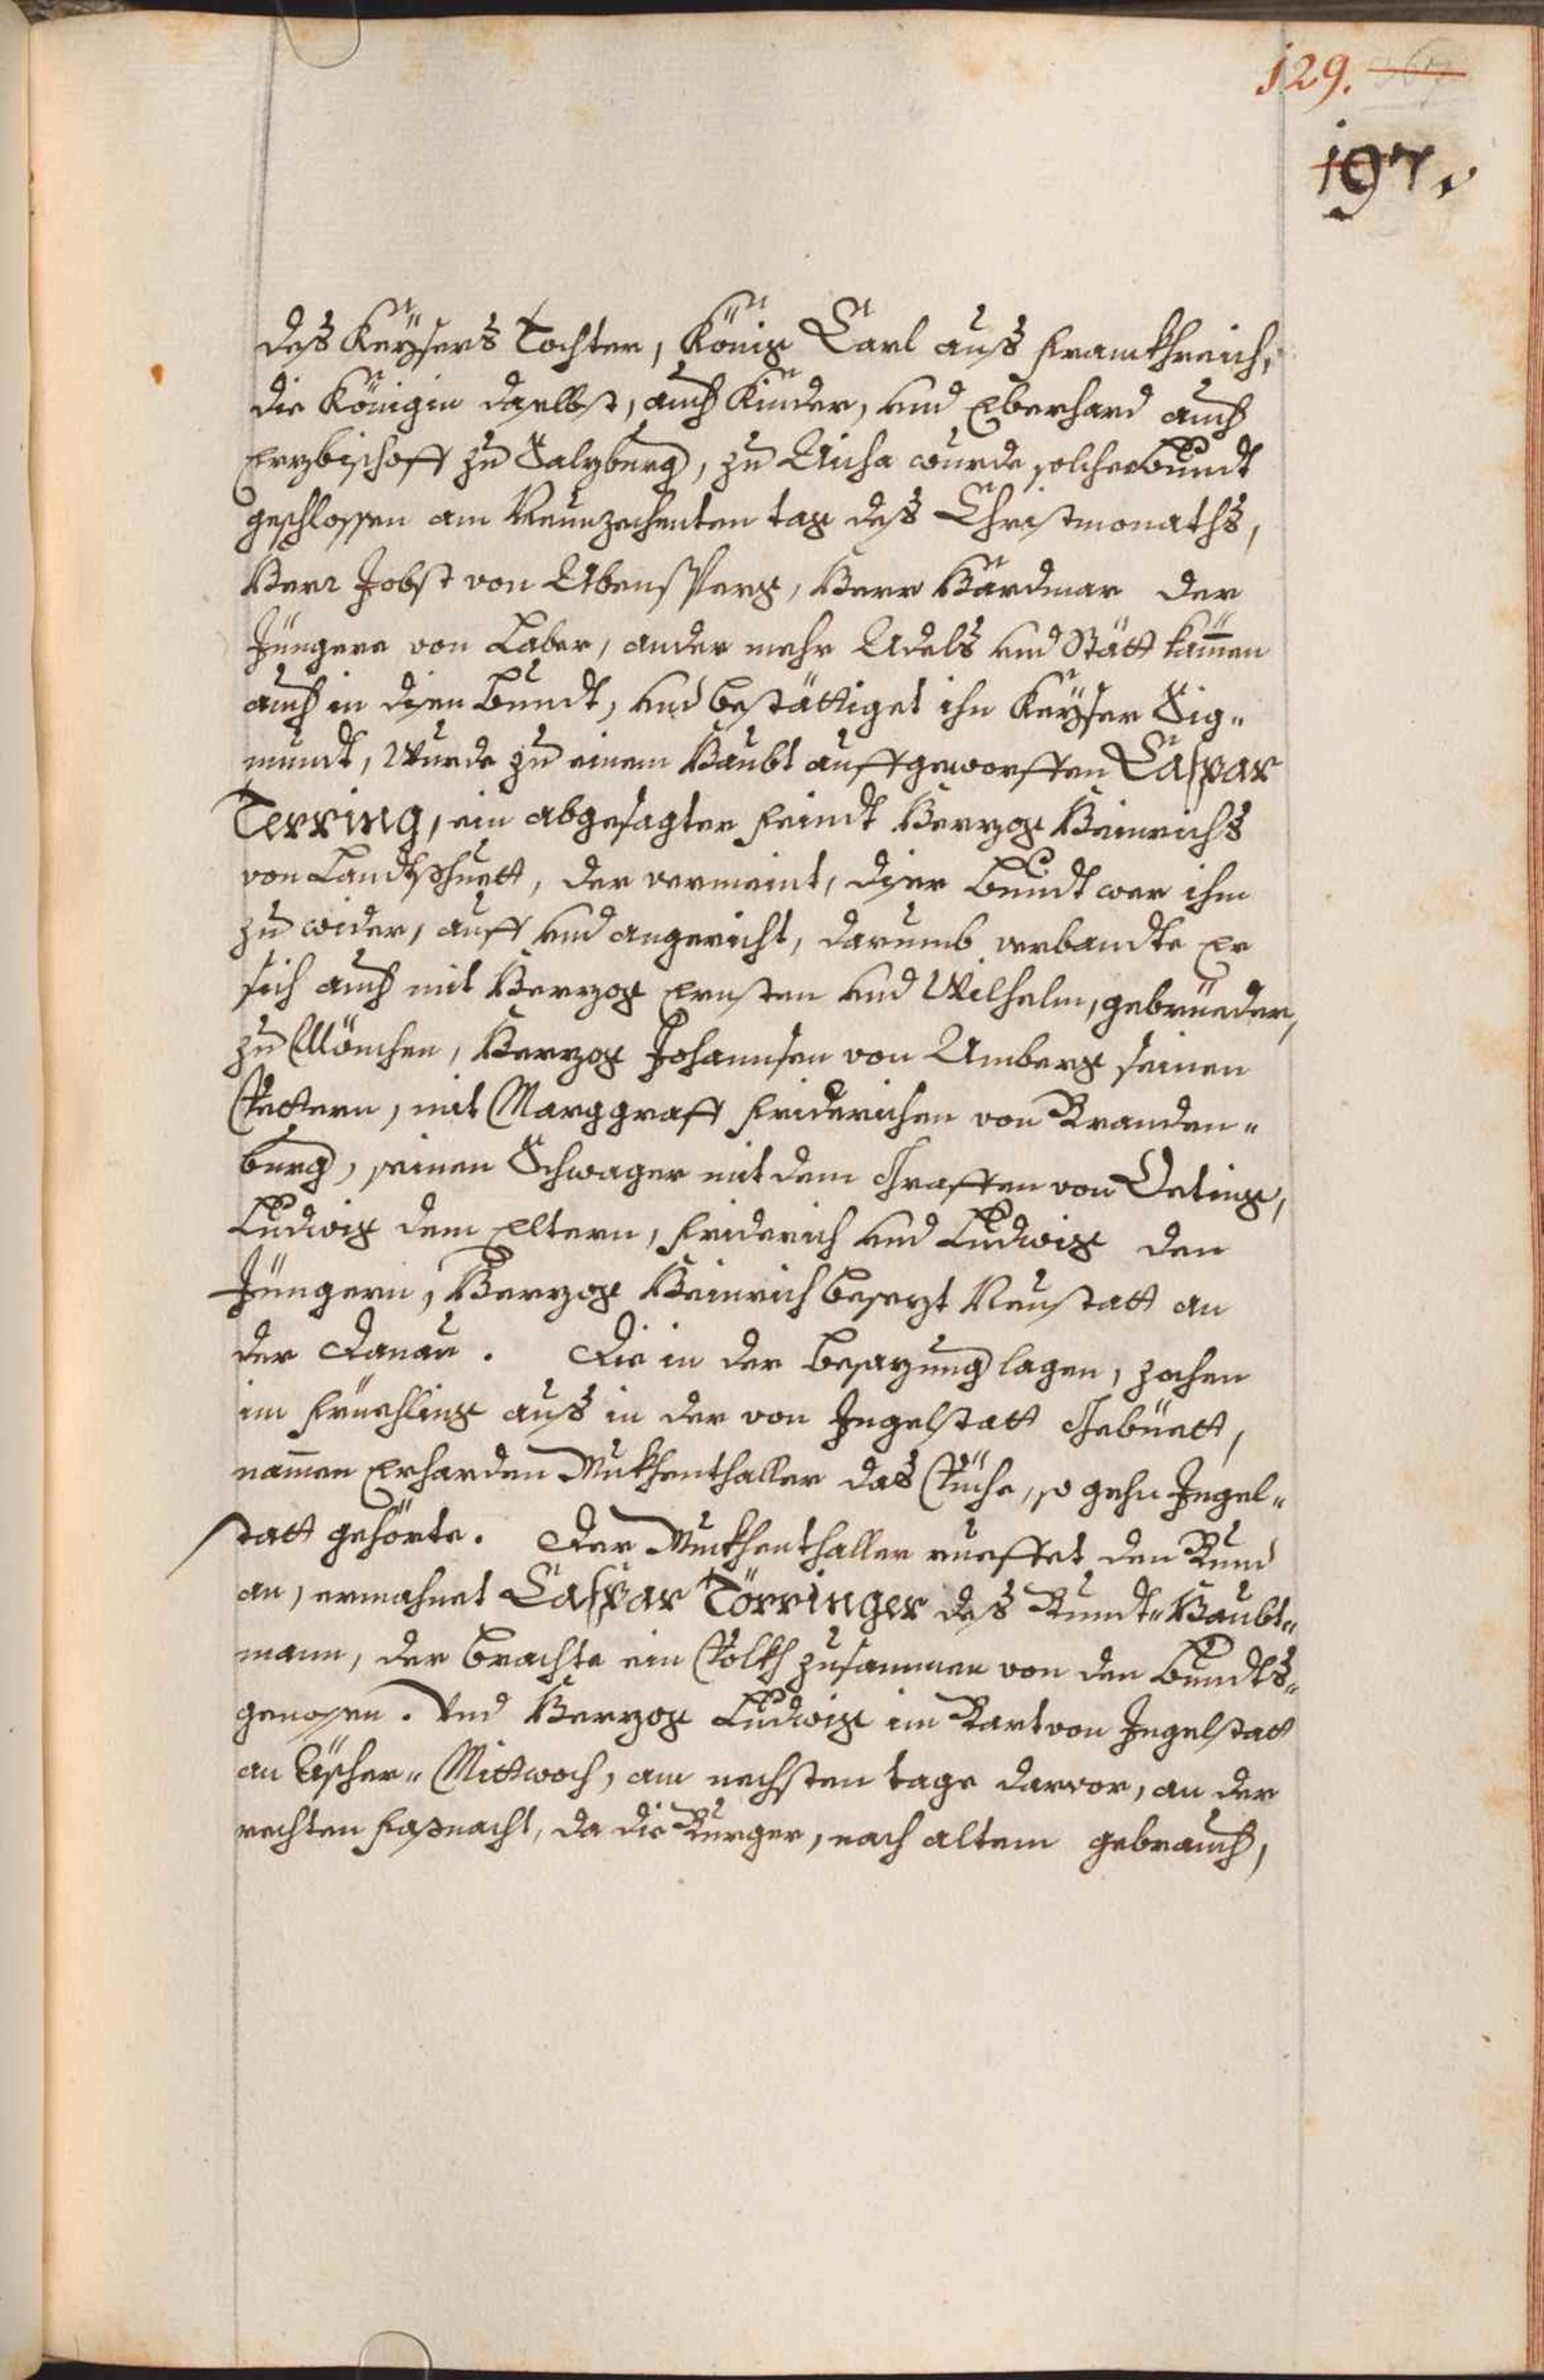 129. 367
197.
deß Keÿsers Tochter, König Carl auß Franckhreich,
die Königin daselbst, auch Kinder, und Eberhard auch
Erzbischoff zu Salzburg, zu Aicha wurde solcher Bundt
geschlossen am Neunzechenten tag deß Christmonaths,
Herr Jobst von Abensperg, Herr Hardmar der
Jüngere von Laber, ander mehr Adels und Stätt kamen
auch in disen Bundt, und bestättiget ihn Keÿser Sig-
mundt, Wurde zu einem Haubt auffgeworffen Caspar
Terring, ein abgesagter Feindt Herzog Heinrichs
von Landtshuett, der vermeint, diser Bundt wer ihm
zu wider, auff und angericht, darumb verbandte Er
sich auch mit Herzog Ernsten und Wilhelm, gebrüeder,
zu Mönchen, Herzog Johannsen von Amberg seinen
Vettern, mit Marggraff Friderichen von Branden-
burg, seinen Schwager mit dem Graffen von Oeting,
Ludwig dem Eltern, Friderich und Ludwig den
Jüngern, Herzog Heinrich besezt Neustatt an
der Danau. Die in der Besazung lagen, zochen
im Früehling auß in der von Ingelstatt Gebüett,
namen Erharden Mukhenthaller das Viche, so gehn Ingel-
statt gehörte. Der Mukhenthaller rueffet den Bund
an, ermahnet Caspar Törringer deß Bundt-Haubt-
mann, der brachte ein Volkh zusammen von den Bundts-
genosen. Und Herzog Ludwig im Bart von Ingelstatt
an Äscher-Mittwoch, am nechsten tage darvor, an der
rechten Faßnacht, da die Burger, nach altem gebrauch,